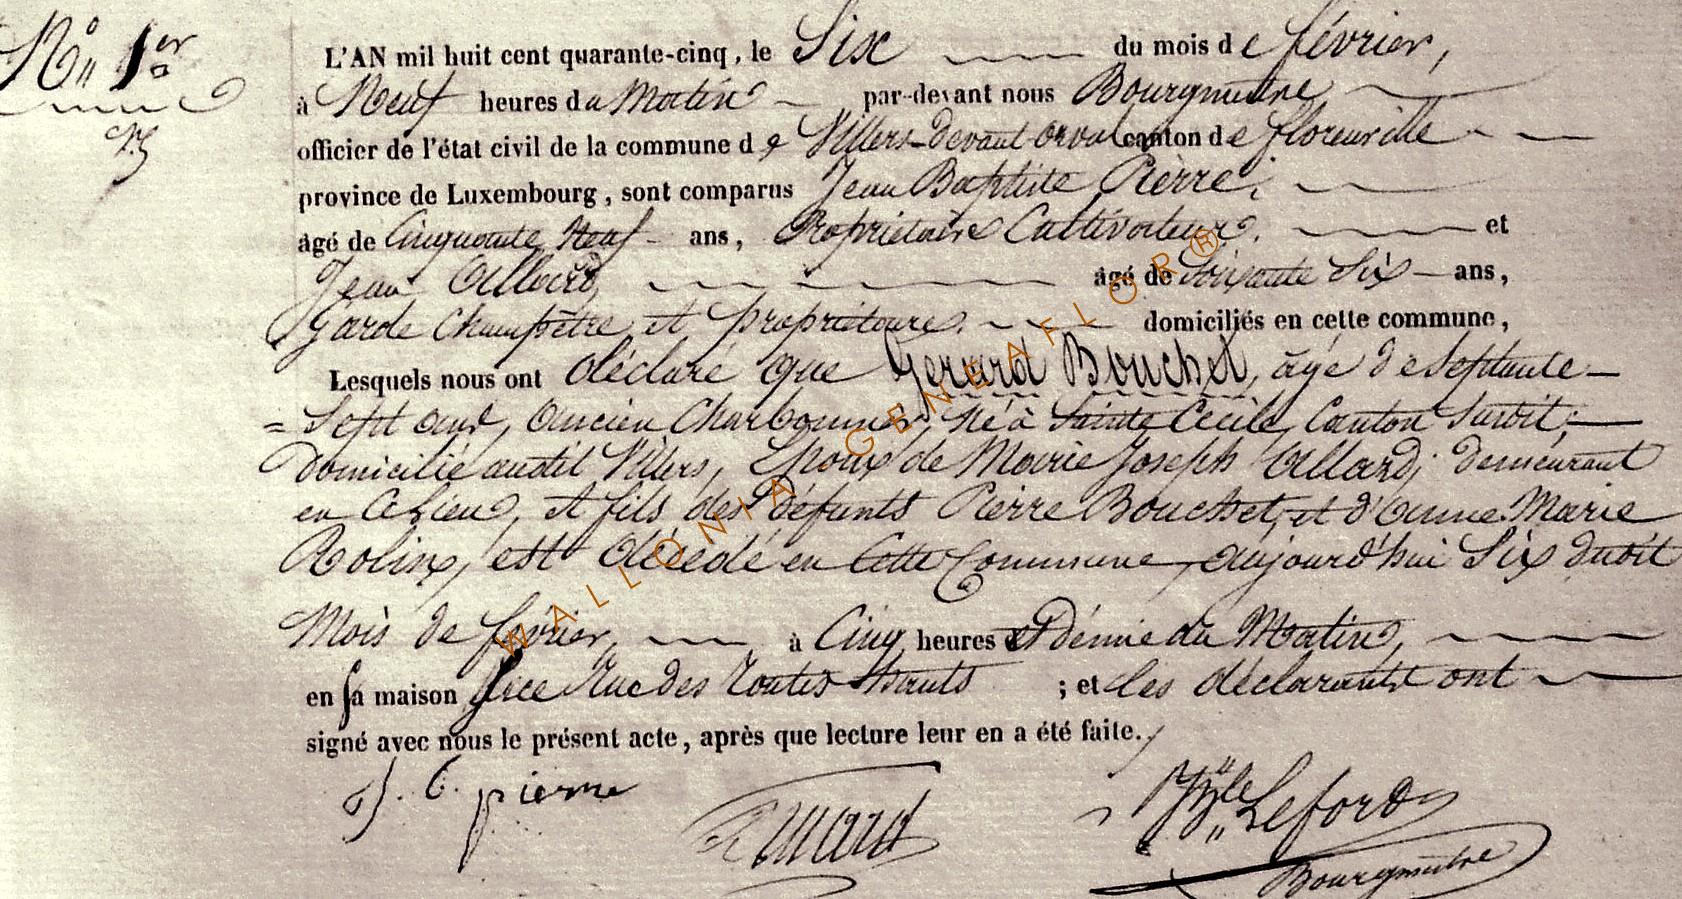 N° 1er
L'AN mil huit cent quarante-cinq, le Six du mois de février,
à Neuf heures du Matin par-devant nous Bourgmestre
officier de l'état civil de la commune de Villers-devant orval canton de florenville
province de Luxembourg, sont comparus Jean Baptiste Pierre,
âgé de Cinquante Neuf ans, Propriétaire Cultivateur, et
Jean Allard, âgé de Soixante Six ans,
Garde Champêtre et propriétaire, domiciliés en cette commune,
Lesquels nous ont déclaré que Gerard Bouchet, âgé de septante-
= Sept ans, Ancien Charbonnier, Né à Sainte Cecile, Canton Susdit;
Domicilié audit Villers, Epoux de Marie Joseph Allard; demeurant
en ce lieu, et fils des défunts Pierre Bouchet, et d'Anne Marie
Rolin, est décédé en cette Commune, aujourd'hui Six dudit
Mois de février, à Cinq heures et Démie du Matin,
en sa maison sise Rue des hauts ; et les déclarants ont
signé avec nous le présent acte, après que lecture leur en a été faite.
J. B. pierre
Bte Leford
Bourgmestre
WALLONIA GENEAFLOR®